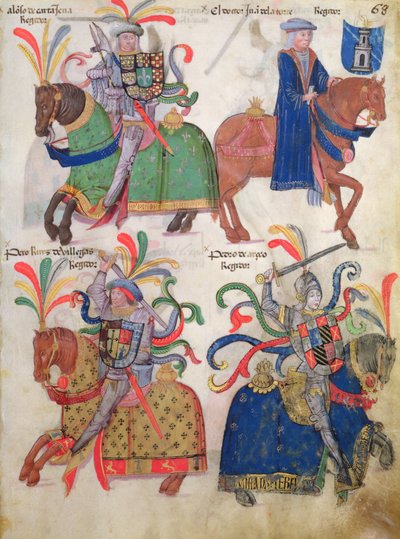 alōso de cartajena
Regidor
El doctor Juā de la torre Regidor
68
Pero Ruys de Villegas
Regidor
Pedro de arçeo
Regidor